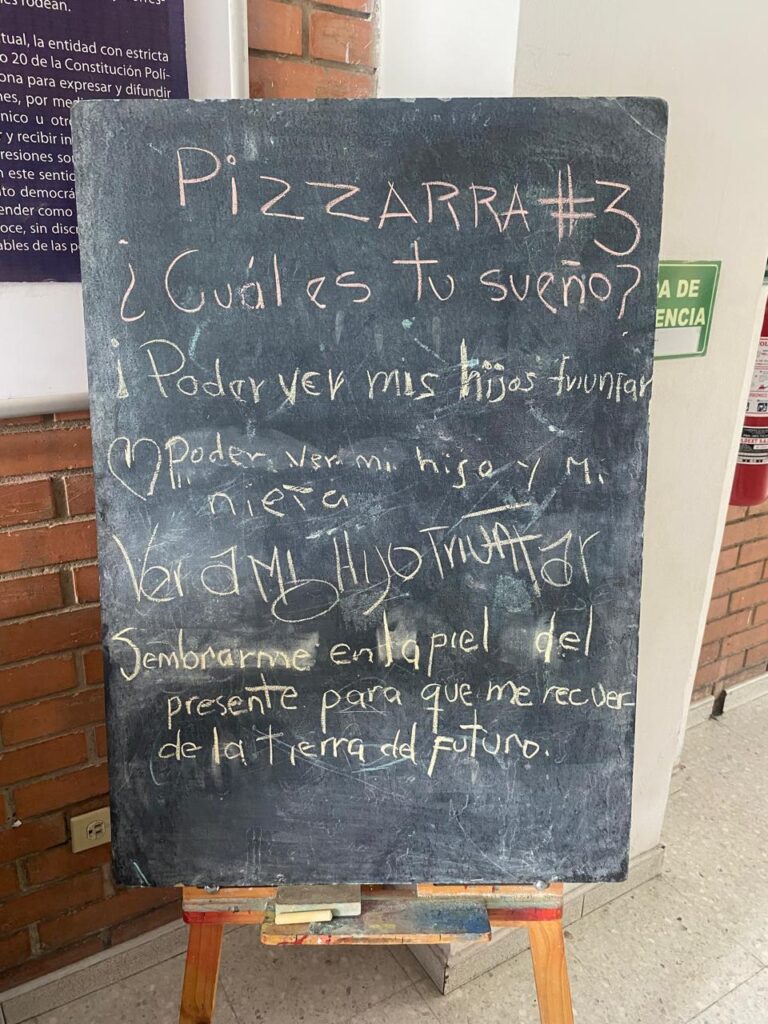 les rodean.
tual, la entidad con estricta
o 20 de la Constitución Polí-
ona para expresar y difundir
nes, por med
nico u otro
r y recibir in
resiones so
n este sentid
nto democrá
ender como
oce, sin disc
ables de las p
PizzARRA #3
¿Cuál es tu sueño?
¡Poder ver mis hijos triunfar
Poder ver mi hijo y mi
nieta
Ver a Mi Hijo Triunfar
Sembrarme en la piel del
presente para que me recuer-
de la tierra del futuro.
A DE
ENCIA